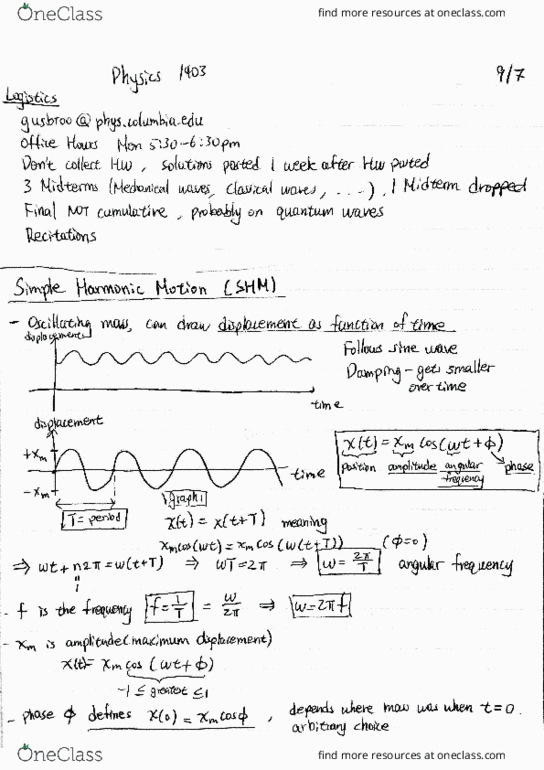 OneClass
find more resources at oneclass.com
Physics 1403
9/7
Logistics
gusbroo@phys.columbia.edu
Office Hours Mon 5:30-6:30pm
Don't collect HW, solutions posted 1 week after HW posted
3 Midterms (Mechanical waves, Classical waves, ....), 1 Midterm dropped
Final NOT cumulative, probably on quantum waves
Recitations
Simple Harmonic Motion (SHM)
- Oscillating mass, can draw displacement as function of time
displacement
Follows sine wave
Damping - gets smaller
over time
time
displacement
+xm
-xm
time
x(t) = xm cos(ωt+ϕ)
position amplitude angular frequency phase
T = period
graph 1
x(t) = x(t+T) meaning
xm cos(ωt) = xm cos(ω(t+T)) (ϕ=0)
⇒ ωt + n2π = ω(t+T) ⇒ ωT = 2π ⇒ ω = 2π/T angular frequency
1
- f is the frequency f = 1/T = ω/2π ⇒ ω = 2πf
- xm is amplitude (maximum displacement)
x(t) = xm cos(ωt+ϕ)
-1 ≤ greatest ≤ 1
- phase ϕ defines x(0) = xm cosϕ, depends where mass was when t=0.
arbitrary choice
OneClass
find more resources at oneclass.com